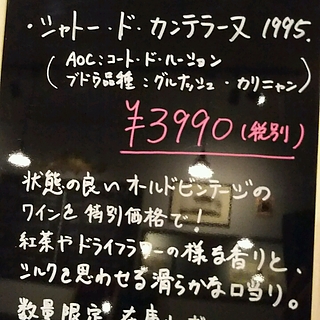 ・シャトー・ド・カンテラーヌ 1995.
(AOC:コート・ド・ルーション
ブドウ品種:グルナッシュ・カリニャン)
¥3990(税別)
状態の良いオールドビンテージの
ワインを特別価格で!
紅茶やドライフラワーの様な香りと、
シルクを思わせる滑らかな口当り。
数量限定